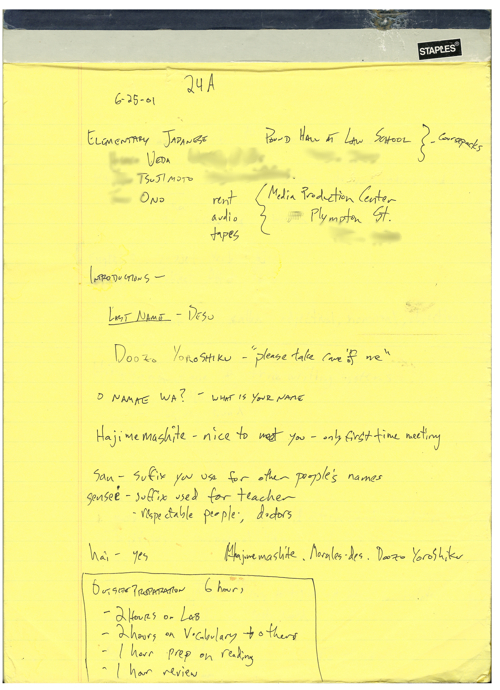 STAPLES®
24A
6-25-01
ELEMENTARY JAPANESE POUND HALL AT LAW SCHOOL } - coursepacks
UEDA
TSUJIMOTO
ONO rent { Media Production Center
audio Plympton St.
tapes
INTRODUCTIONS -
LAST NAME - DESU
DOOZO YOROSHIKU - "please take care of me"
O NAMAE WA? - WHAT IS YOUR NAME
Hajimemashite - nice to meet you - only first time meeting
san - suffix you use for other people's names
sensei - suffix used for teacher
- respectable people, doctors
hai - yes Hajimemashite. Morales-des. Doozo Yoroshiku
OUTSIDE PREPARATION 6 hours
- 2 HOURS ON LAB
- 2 hours on Vocabulary + others
- 1 hour prep on reading
- 1 hour review